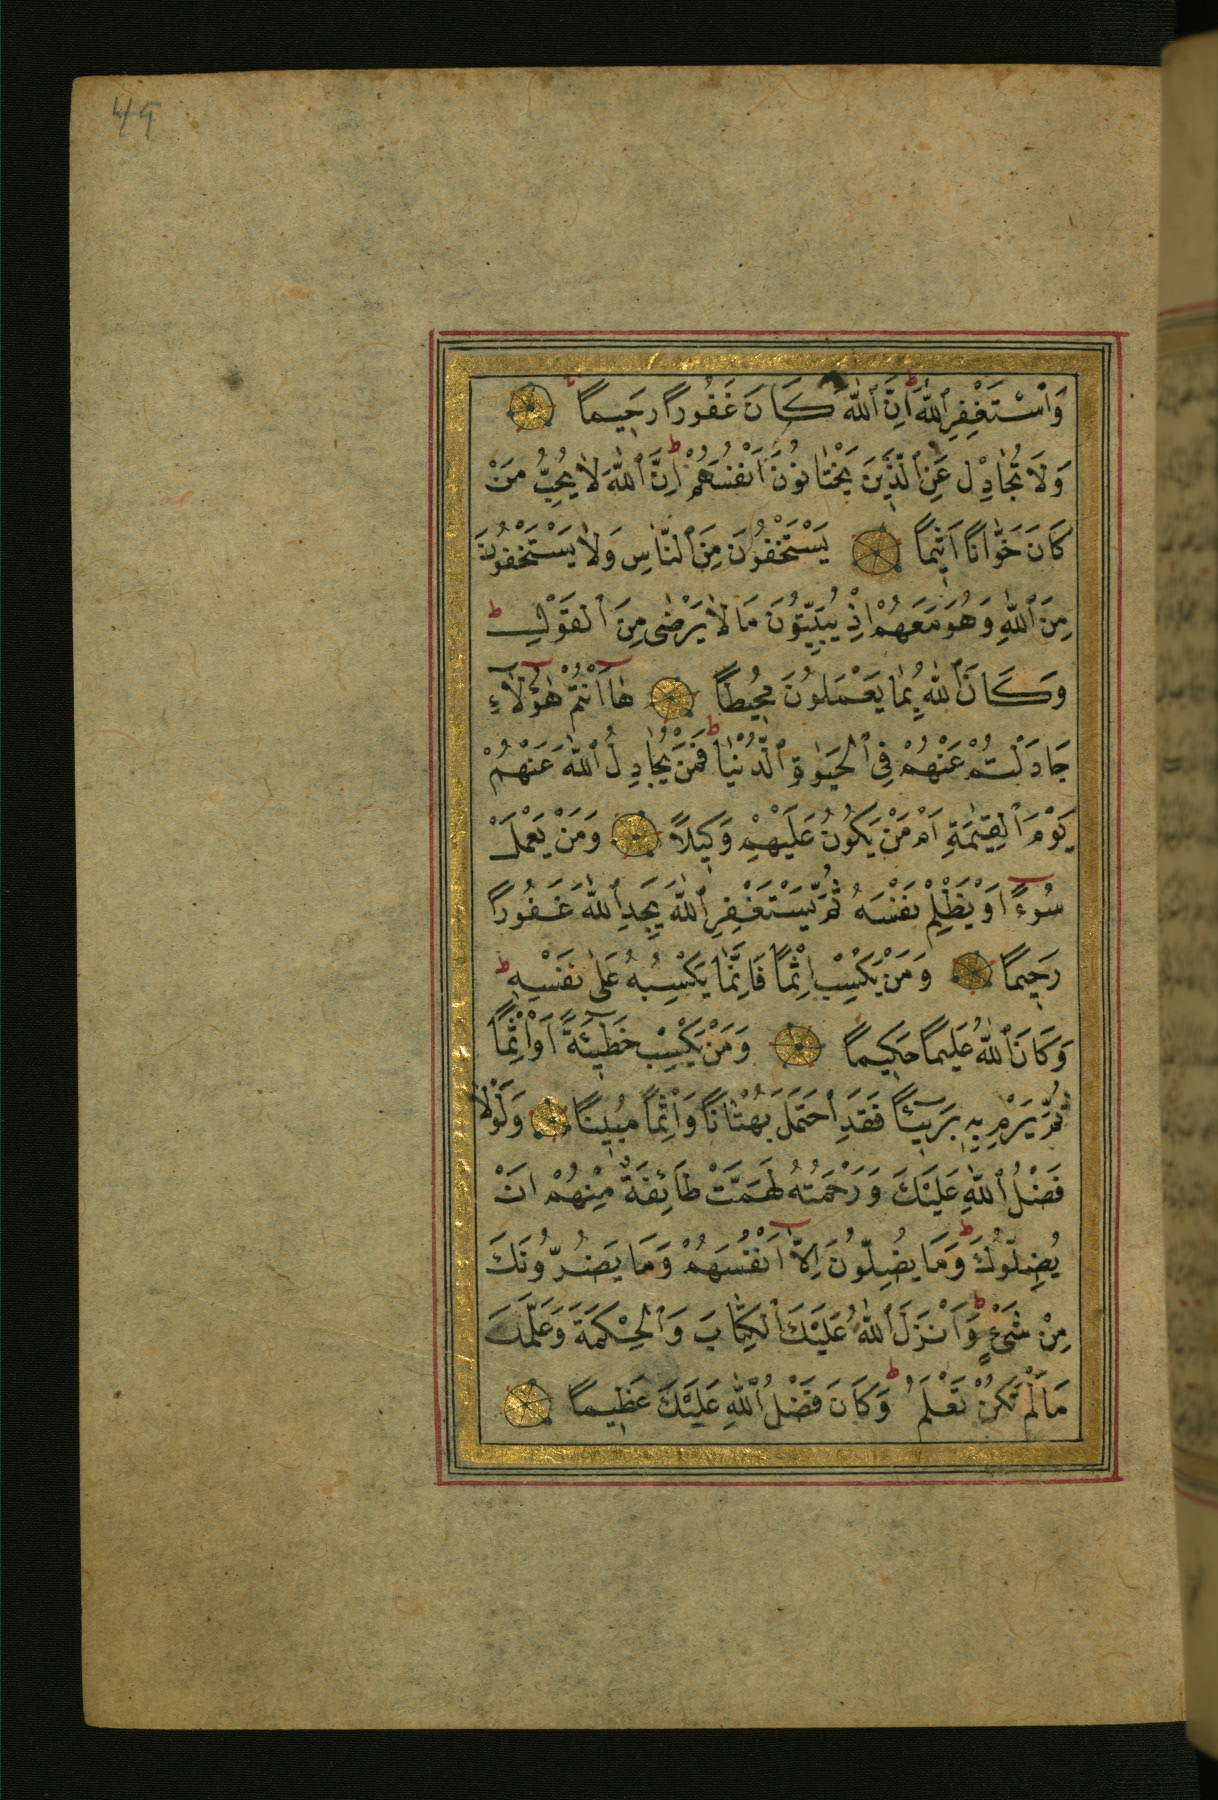 49
وَاسْتَغْفِرِ اللّٰهَ ط اِنَّ اللّٰهَ كَانَ غَفُورًا رَحِيمًا
وَلَا تُجَادِلْ عَنِ الَّذِينَ يَخْتَانُونَ اَنْفُسَهُمْ ط اِنَّ اللّٰهَ لَا يُحِبُّ مَنْ
كَانَ خَوَّانًا اَثِيمًا يَسْتَخْفُونَ مِنَ النَّاسِ وَلَا يَسْتَخْفُونَ
مِنَ اللّٰهِ وَهُوَ مَعَهُمْ اِذْ يُبَيِّتُونَ مَا لَا يَرْضٰى مِنَ الْقَوْلِ ط
وَكَانَ اللّٰهُ بِمَا يَعْمَلُونَ مُحِيطًا هَٓا اَنْتُمْ هٰٓؤُلَٓاءِ
جَادَلْتُمْ عَنْهُمْ فِى الْحَيٰوةِ الدُّنْيَا ط فَمَنْ يُجَادِلُ اللّٰهَ عَنْهُمْ
يَوْمَ الْقِيٰمَةِ اَمْ مَنْ يَكُونُ عَلَيْهِمْ وَكِيلًا وَمَنْ يَعْمَلْ
سُٓوءًا اَوْ يَظْلِمْ نَفْسَهُ ثُمَّ يَسْتَغْفِرِ اللّٰهَ يَجِدِ اللّٰهَ غَفُورًا
رَحِيمًا وَمَنْ يَكْسِبْ اِثْمًا فَاِنَّمَا يَكْسِبُهُ عَلٰى نَفْسِهِ ط
وَكَانَ اللّٰهُ عَلِيمًا حَكِيمًا وَمَنْ يَكْسِبْ خَطِيٓئَةً اَوْ اِثْمًا
ثُمَّ يَرْمِ بِهِ بَرِيٓئًا فَقَدِ احْتَمَلَ بُهْتَانًا وَاِثْمًا مُبِينًا وَلَوْلَا
فَضْلُ اللّٰهِ عَلَيْكَ وَرَحْمَتُهُ لَهَمَّتْ طَائِفَةٌ مِنْهُمْ اَنْ
يُضِلُّوكَ ط وَمَا يُضِلُّونَ اِلَّٓا اَنْفُسَهُمْ وَمَا يَضُرُّونَكَ
مِنْ شَىْءٍ ط وَاَنْزَلَ اللّٰهُ عَلَيْكَ الْكِتَابَ وَالْحِكْمَةَ وَعَلَّمَكَ
مَا لَمْ تَكُنْ تَعْلَمُ ط وَكَانَ فَضْلُ اللّٰهِ عَلَيْكَ عَظِيمًا